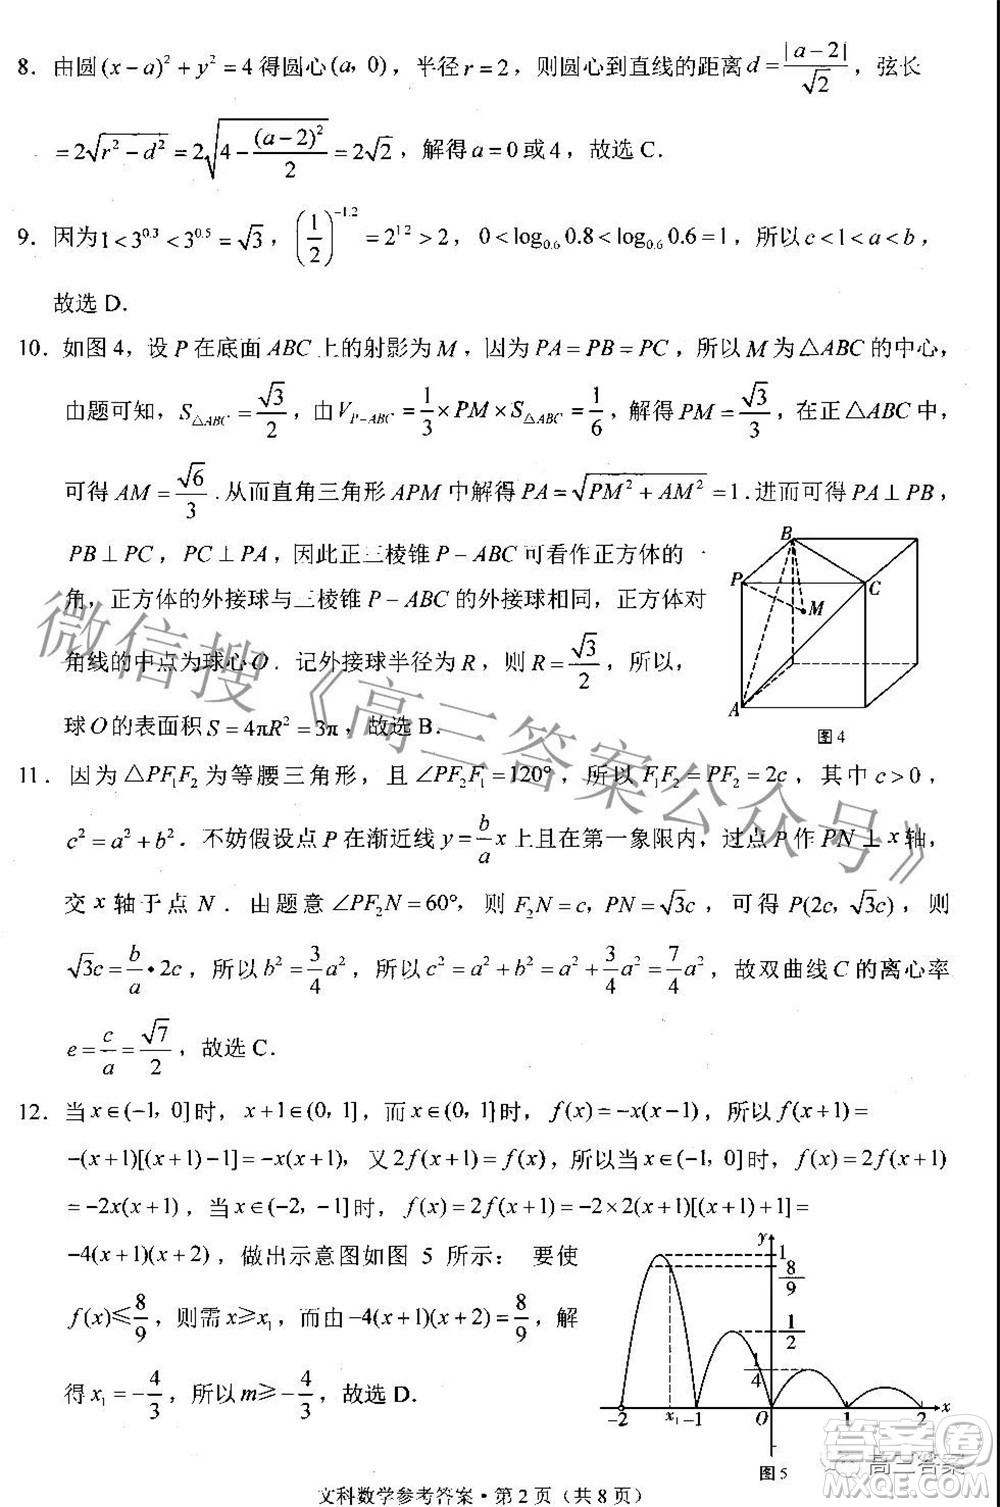 8．由圆(x－a)²＋y²＝4得圆心(a，0)，半径r＝2，则圆心到直线的距离d＝|a－2|/√2，弦长
＝2√(r²－d²)＝2√(4－(a－2)²/2)＝2√2，解得a＝0或4，故选C．
9．因为1＜3^0.3＜3^0.5＝√3，(1/2)^－1.2＝2^1.2＞2，0＜log_0.6 0.8＜log_0.6 0.6＝1，所以c＜1＜a＜b，
故选D．
10．如图4，设P在底面ABC上的射影为M，因为PA＝PB＝PC，所以M为△ABC的中心，
由题可知，S_△ABC＝√3/2，由V_P－ABC＝1/3×PM×S_△ABC＝1/6，解得PM＝√3/3，在正△ABC中，
可得AM＝√6/3．从而直角三角形APM中解得PA＝√(PM²＋AM²)＝1．进而可得PA⊥PB，
PB⊥PC，PC⊥PA，因此正三棱锥P－ABC可看作正方体的一
角，正方体的外接球与三棱锥P－ABC的外接球相同，正方体对
角线的中点为球心O．记外接球半径为R，则R＝√3/2，所以，
球O的表面积S＝4πR²＝3π，故选B．
B
P
C
M
A
图4
11．因为△PF₁F₂为等腰三角形，且∠PF₂F₁＝120°，所以F₁F₂＝PF₂＝2c，其中c＞0，
c²＝a²＋b²．不妨假设点P在渐近线y＝b/a x上且在第一象限内，过点P作PN⊥x轴，
交x轴于点N．由题意∠PF₂N＝60°，则F₂N＝c，PN＝√3c，可得P(2c，√3c)，则
√3c＝b/a•2c，所以b²＝3/4a²，所以c²＝a²＋b²＝a²＋3/4a²＝7/4a²，故双曲线C的离心率
e＝c/a＝√7/2，故选C．
12．当x∈(－1，0]时，x＋1∈(0，1]，而x∈(0，1]时，f(x)＝－x(x－1)，所以f(x＋1)＝
－(x＋1)[(x＋1)－1]＝－x(x＋1)，又2f(x＋1)＝f(x)，所以当x∈(－1，0]时，f(x)＝2f(x＋1)
＝－2x(x＋1)，当x∈(－2，－1]时，f(x)＝2f(x＋1)＝－2×2(x＋1)[(x＋1)＋1]＝
－4(x＋1)(x＋2)，做出示意图如图5所示：要使
f(x)≤8/9，则需x≥x₁，而由－4(x＋1)(x＋2)＝8/9，解
得x₁＝－4/3，所以m≥－4/3，故选D．
y
1
8/9
1/2
1/4
－2 x₁ －1 O 1 2 x
图5
文科数学参考答案·第2页（共8页）
微信搜《高三答案公众号》
高三答案
答案圈
MXQE.COM